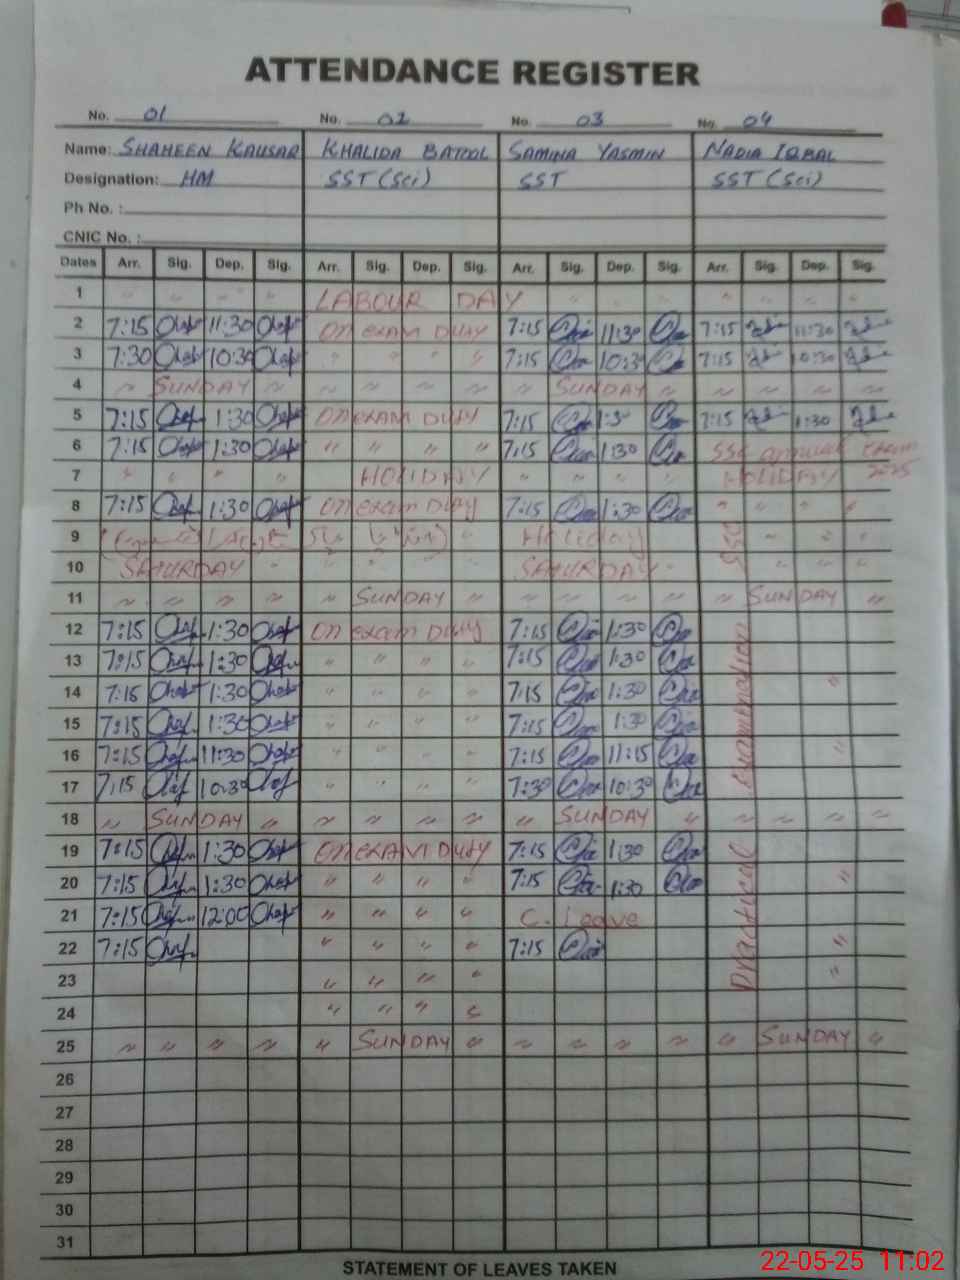 ATTENDANCE REGISTER
No. 01 No. 02 No. 03 No. 04
Name: SHAHEEN KAUSAR KHALIDA BATOOL SAMINA YASMIN NADIA IQBAL
Designation: HM SST (Sci) SST SST (Sci)
Ph No. :
CNIC No. :
Dates Arr. Sig. Dep. Sig. Arr. Sig. Dep. Sig. Arr. Sig. Dep. Sig. Arr. Sig. Dep. Sig.
1 " " " " LABOUR DAY " " " " " " "
2 7:15 11:30 On exam duty 7:15 11:30 7:15 11:30
3 7:30 10:30 " " " " 7:15 10:30 7:15 10:30
4 " SUNDAY " " " " " " SUNDAY " " " " "
5 7:15 1:30 On exam duty 7:15 1:30 7:15 1:30
6 7:15 1:30 " " " " 7:15 1:30 SSC annual Exam 2025
7 " " " " HOLIDAY " " " " HOLIDAY
8 7:15 1:30 On exam duty 7:15 1:30 " " " "
9 Holiday SSC " " "
10 SATURDAY " " " " " SATURDAY " " " "
11 " " " " " SUNDAY " " " " " SUNDAY "
12 7:15 1:30 On exam duty 7:15 1:30
13 7:15 1:30 " " " " 7:15 1:30
14 7:15 1:30 " " " " 7:15 1:30 "
15 7:15 1:30 " " " " 7:15 1:30
16 7:15 11:30 " " " " 7:15 11:15 "
17 7:15 10:30 " " " " 7:30 10:30
18 " SUNDAY " " " " " " SUNDAY " " " " "
19 7:15 1:30 On EXAM DUTY 7:15 1:30
20 7:15 1:30 " " " " 7:15 1:30 "
21 7:15 12:00 " " " " C. Leave
22 7:15 " " " " 7:15 "
23 " " " " "
24 " " " "
25 " " " " " SUNDAY " " " " " " SUNDAY "
Practical Examination
26
27
28
29
30
31
STATEMENT OF LEAVES TAKEN
22-05-25 11:02